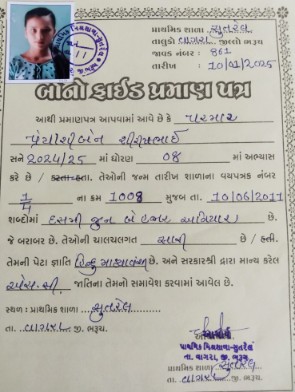 પ્રાથમિક શાળા સુતરેલ
તાલુકો વાગરા જીલ્લો ભરૂચ
જાવક નંબર : 861
તારીખ : 10/01/2025
બોનોફાઈડ પ્રમાણ પત્ર
આથી પ્રમાણપત્ર આપવામાં આવે છે કે પરમાર
શીરીષભાઈ
સને 2024/25 માં ધોરણ 08 માં અભ્યાસ
કરે છે / કરતા હતા. તેઓની જન્મ તારીખ શાળાના વયપત્રક નંબર
1/4 ના ક્રમ 1008 મુજબ તા. 10/06/2011
શબ્દોમાં દસમી જુન બે હજાર અગિયાર છે.
જે બરાબર છે. તેઓની ચાલચલગત સારી છે / હતી.
તેમની પેટા જ્ઞાતિ હિન્દુ છે. અને સરકારશ્રી દ્વારા માન્ય કરેલ
એસ.સી. જાતિના તેમનો સમાવેશ કરવામાં આવેલ છે.
સ્થળ : પ્રાથમિક શાળા, સુતરેલ
તા. વાગરા જી. ભરૂચ.
આચાર્ય
પ્રાથમિક મિશ્રશાળા-સુતરેલ
તા. વાગરા, જી. ભરૂચ
પ્રાથમિક શાળા સુતરેલ
તા. વાગરા જી. ભરૂચ